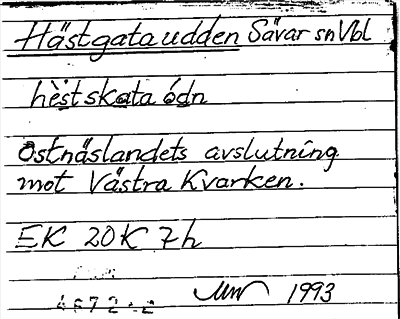 Hästgataudden Sävar sn Vbl
hèstskata ódn
Ostnäslandets avslutning
mot Västra Kvarken.
EK 20K 7h
1993